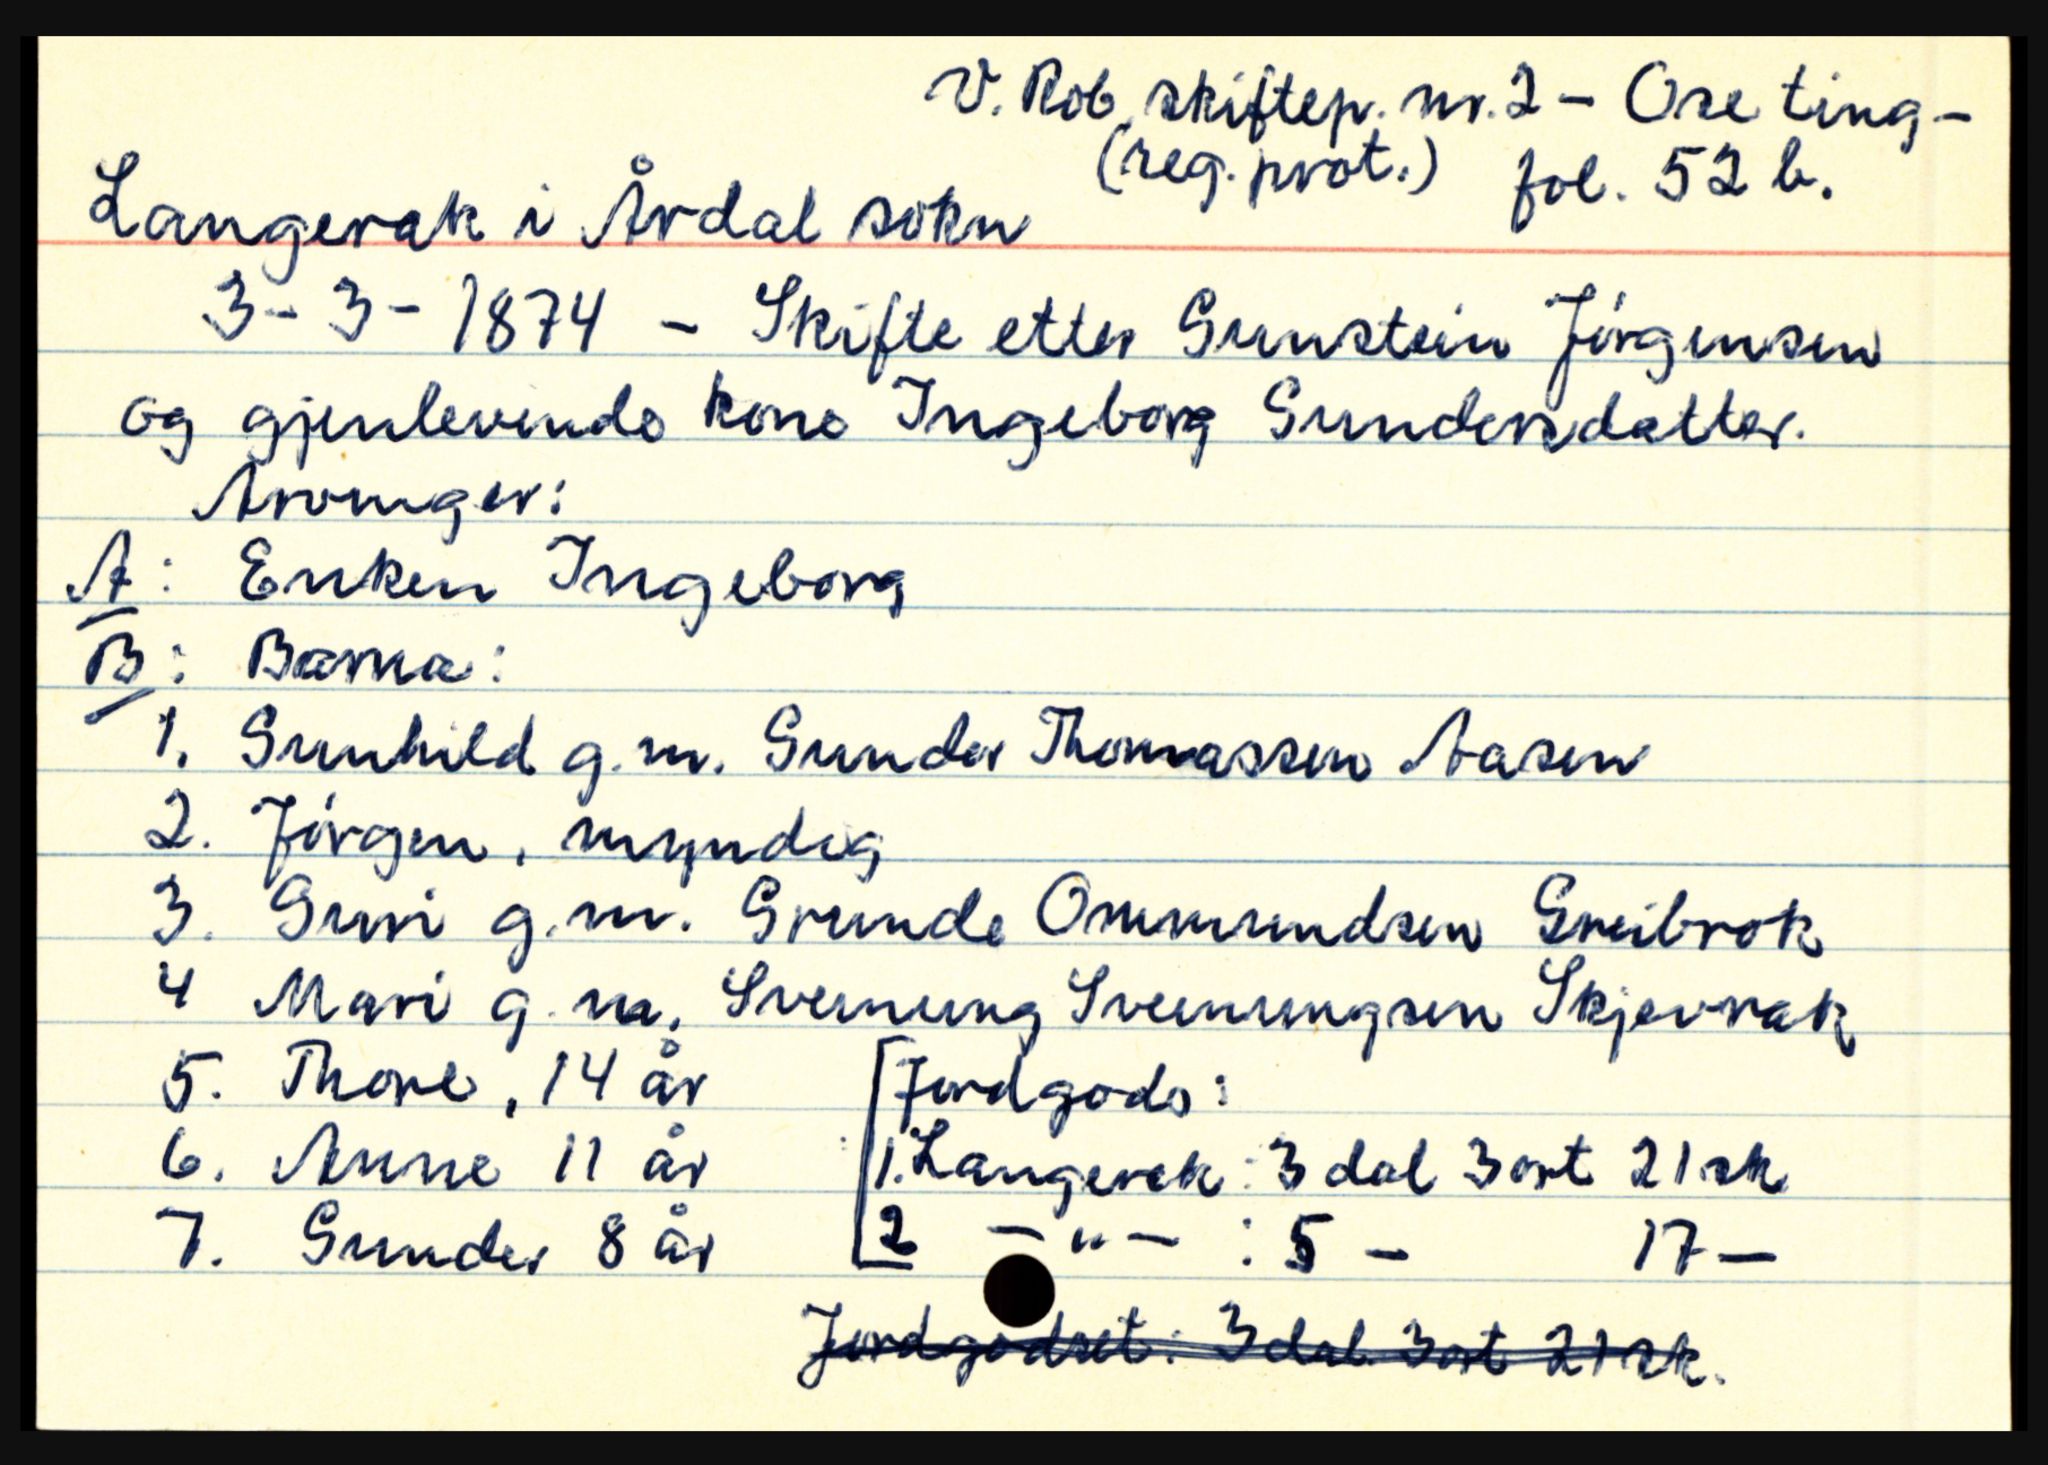 V. Rob. skiftep. nr. 2 – Ose ting –
(reg. prot.) fol. 52 b.
Langerak i Årdal sokn
3 – 3 – 1874 – Skifte etter Gunstein Jörgensen
og gjenlevende kone Ingeborg Gundersdatter.
Arvinger:
A: Enken Ingeborg
B: Barna:
1. Gunhild g.m. Gunder Thomassen Aasen
2. Jörgen, myndig
3. Guri g.m. Grunde Ommundsen Greibrok
4 Mari g.m. Sveinung Sveinungsen Skjevrak
5. Thore, 14 år
6. Anne 11 år
7. Gunder 8 år
[Jordgods:
1. Langerak: 3 dal 3 ort 21 sk
2 – " – : 5 – 17 –
Jordgodset: 3 dal. 3 ort 21 sk.